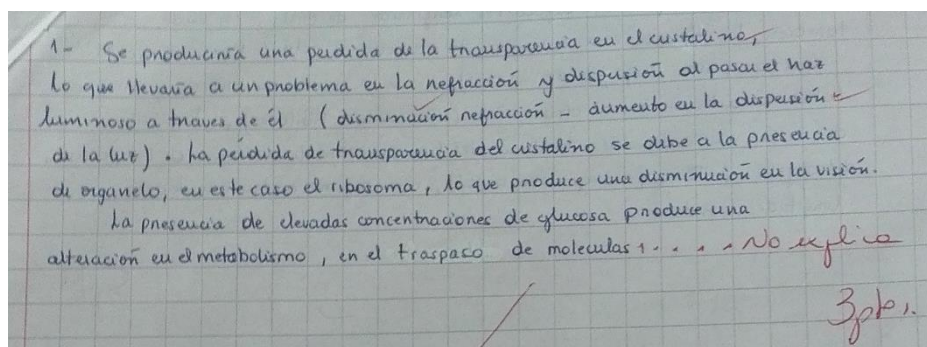 1- Se produciria una perdida de la transparencia en el cristalino,
lo que llevaria a un problema en la refracción y dispersión al pasar el haz
luminoso a traves de él (disminución refracción - aumento en la dispersión
de la luz). La perdida de transparencia del cristalino se debe a la presencia
de organelo, en este caso el ribosoma, lo que produce una disminución en la visión.
La presencia de elevadas concentraciones de glucosa produce una
alteración en el metabolismo, en el traspaso de moleculas . . . . No explica
3pts.